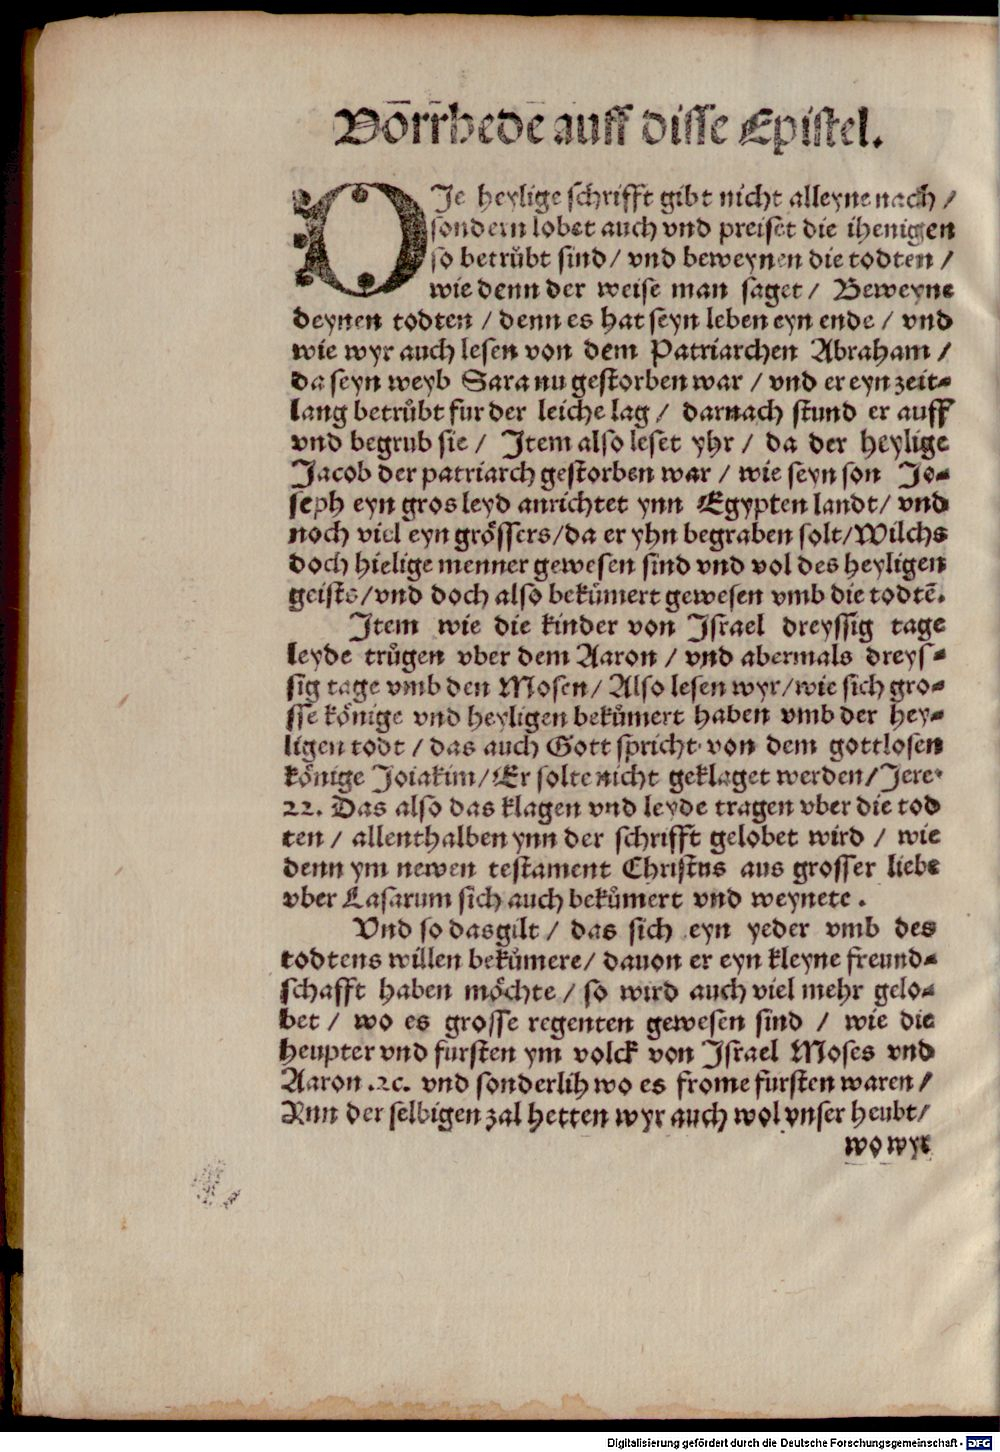 Vōrrhedē auff disse Epistel.
DJe heylige schrifft gibt nicht alleyne nach /
sondern lobet auch vnd preiset die ihenigen
so betrůbt sind / vnd beweynen die todten /
wie denn der weise man saget / Beweyne
deynen todten / denn es hat seyn leben eyn ende / vnd
wie wyr auch lesen von dem Patriarchen Abraham /
da seyn weyb Sara nu gestorben war / vnd er eyn zeit-
lang betrůbt fur der leiche lag / darnach stund er auff
vnd begrub sie / Jtem also leset yhr / da der heylige
Jacob der patriarch gestorben war / wie seyn son Jo-
seph eyn gros leyd anrichtet ynn Egypten landt / vnd
noch viel eyn grössers / da er yhn begraben solt / Wilchs
doch hielige menner gewesen sind vnd vol des heyligen
geists / vnd doch also bekůmert gewesen vmb die todtē.
Jtem wie die kinder von Jsrael dreyssig tage
leyde trůgen vber dem Aaron / vnd abermals dreys-
sig tage vmb den Mosen / Also lesen wyr / wie sich gro-
sse könige vnd heyligen bekůmert haben vmb der hey-
ligen todt / das auch Gott spricht von dem gottlosen
könige Joiakim / Er solte nicht geklaget werden / Jere.
22. Das also das klagen vnd leyde tragen vber die tod
ten / allenthalben ynn der schrifft gelobet wird / wie
denn ym newen testament Christus aus grosser liebe
vber Lasarum sich auch bekůmert vnd weynete .
Vnd so das gilt / das sich eyn yeder vmb des
todtens willen bekůmere / dauon er eyn kleyne freund-
schafft haben möchte / so wird auch viel mehr gelo-
bet / wo es grosse regenten gewesen sind / wie die
heupter vnd fursten ym volck von Jsrael Moses vnd
Aaron .ꝛc. vnd sonderlih wo es frome fursten waren /
Nun der selbigen zal hetten wyr auch wol vnser heubt /
wo wyr
Digitalisierung gefördert durch die Deutsche Forschungsgemeinschaft - DFG